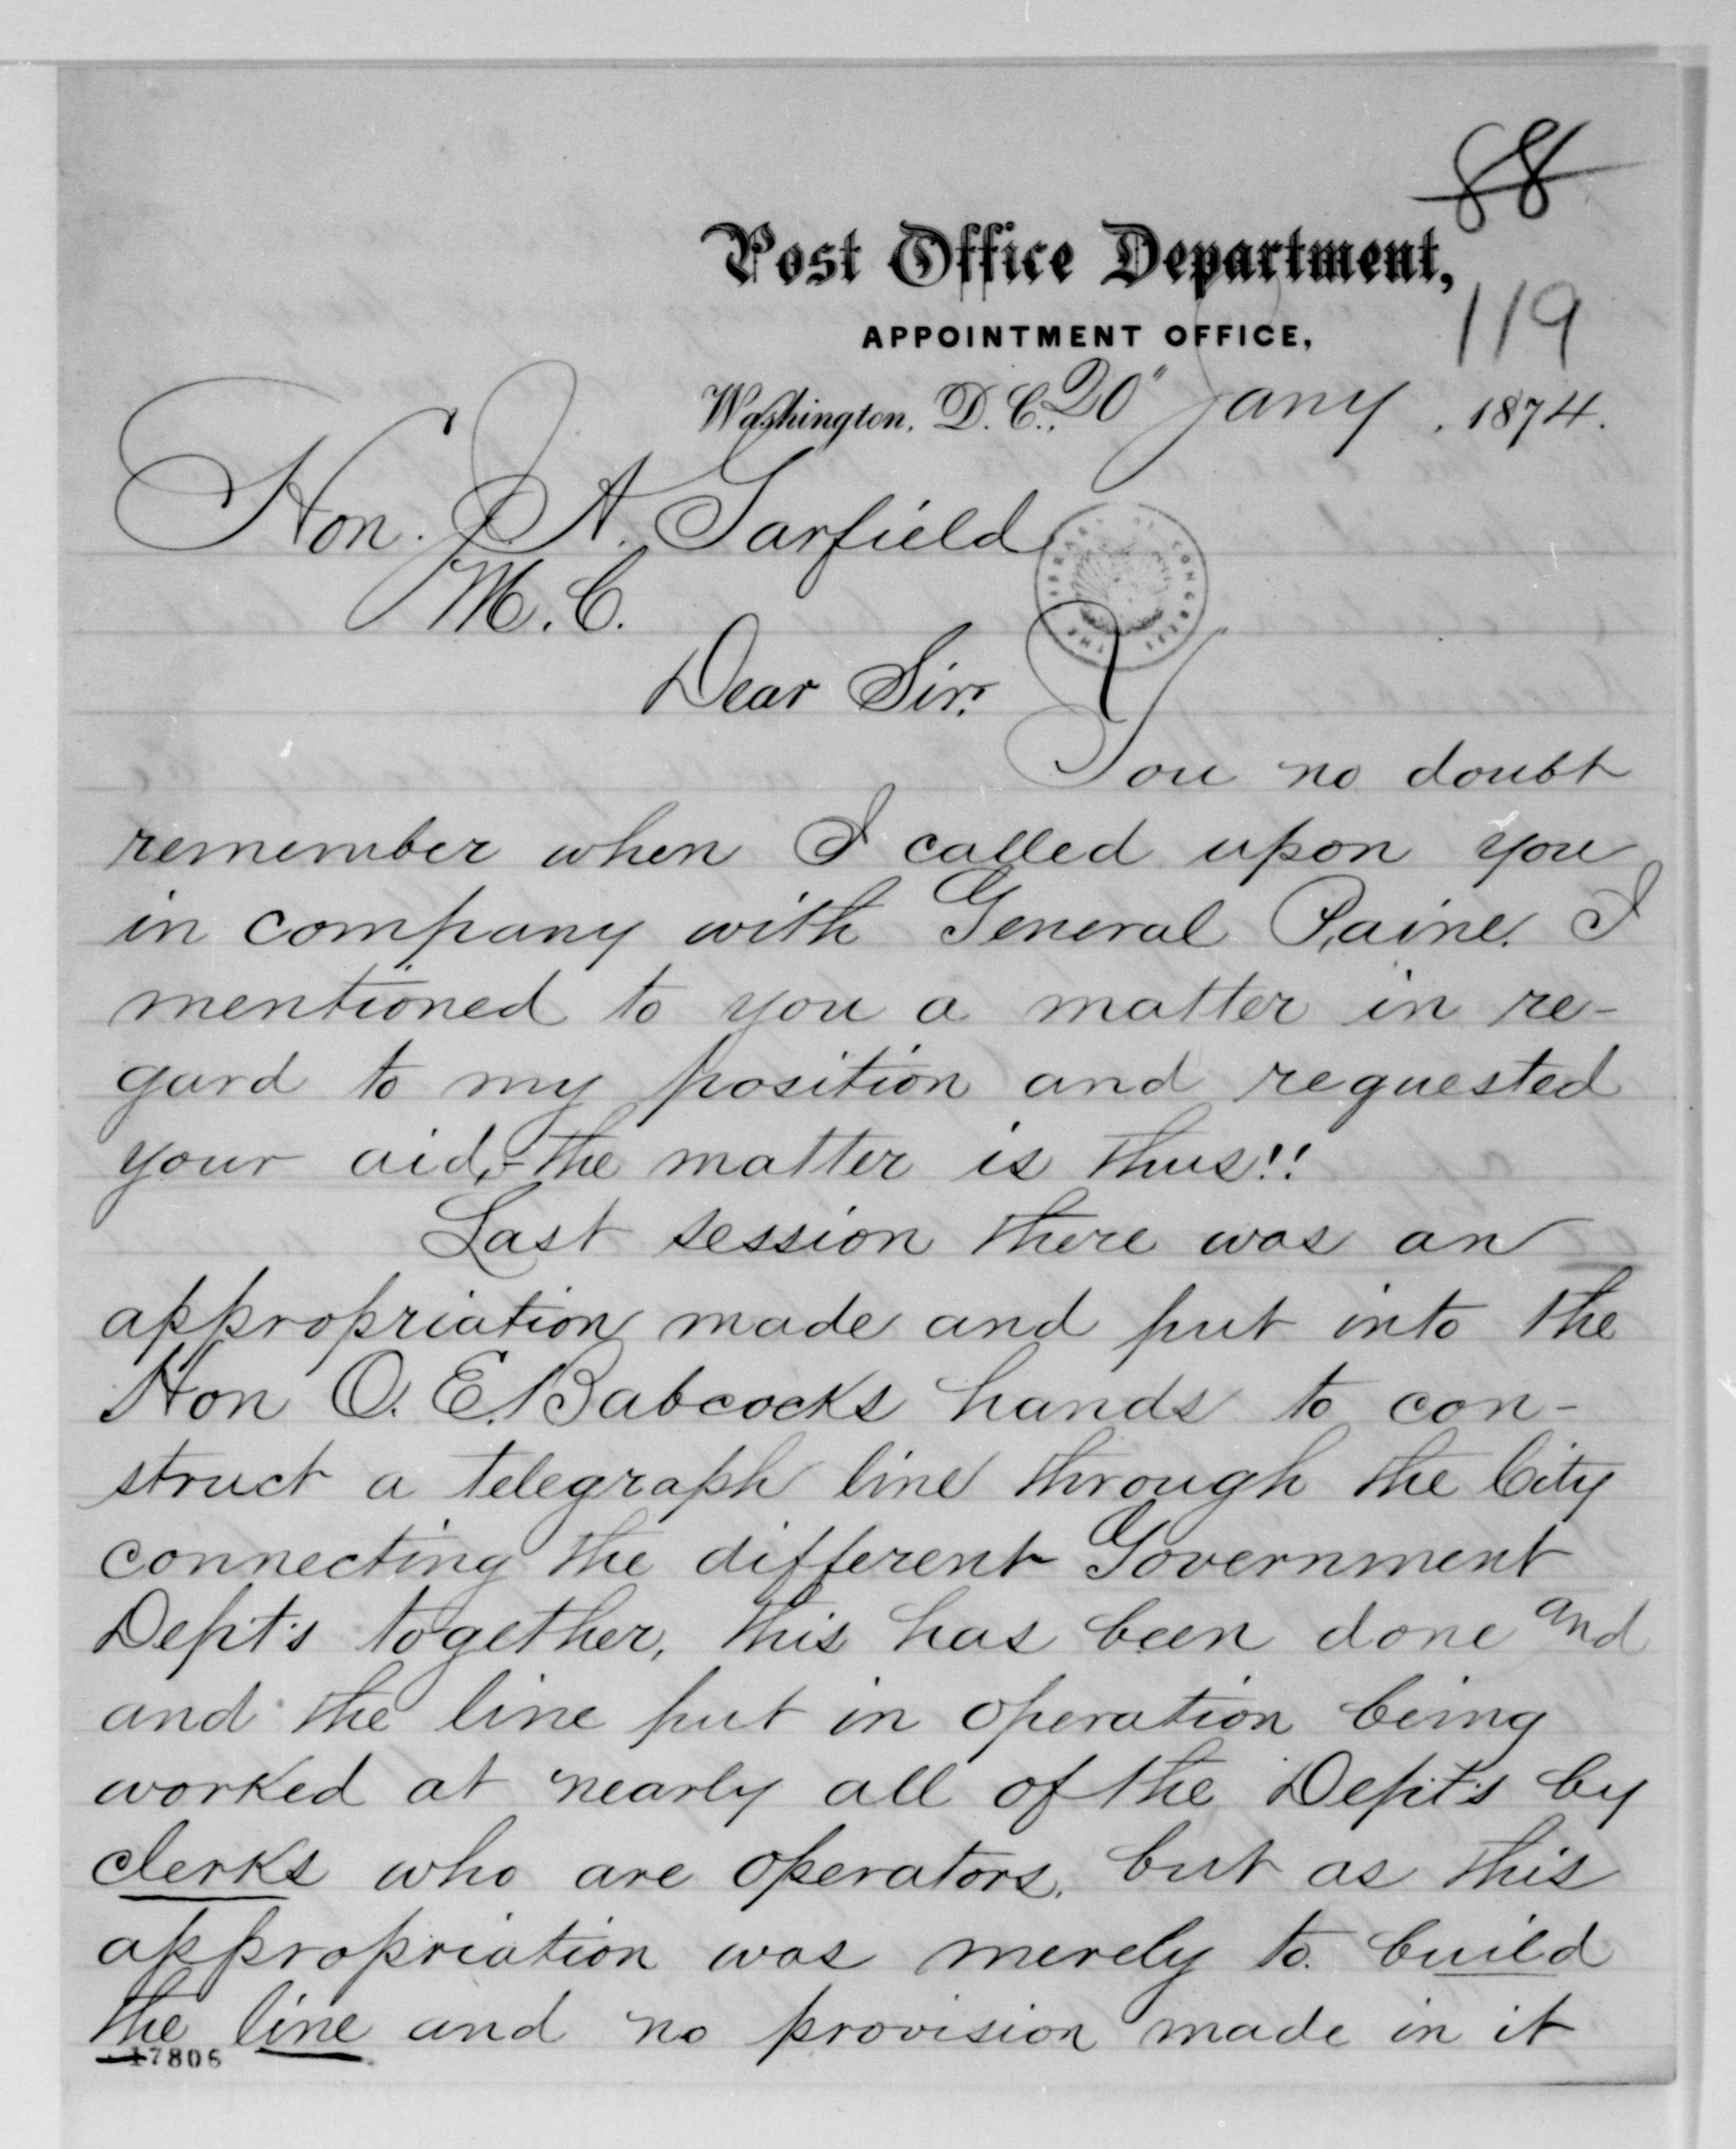 88
Post Office Department,
119
APPOINTMENT OFFICE,
Washington, D. C., 20" Jany, 1874.
Hon. J. A. Garfield
M. C.
Dear Sir:
You no doubt
remember when I called upon you
in company with General Paine. I
mentioned to you a matter in re-
gard to my position and requested
your aid,- the matter is thus!!
Last session there was an
appropriation made and put into the
Hon O. E. Babcocks hands to con-
struct a telegraph line through the City
connecting the different Government
Dept's together, this has been done and
and the line put in operation being
worked at nearly all of the Dept's by
clerks who are operators, but as this
appropriation was merely to build
the line and no provision made in it
17806
THE LIBRARY OF CONGRESS